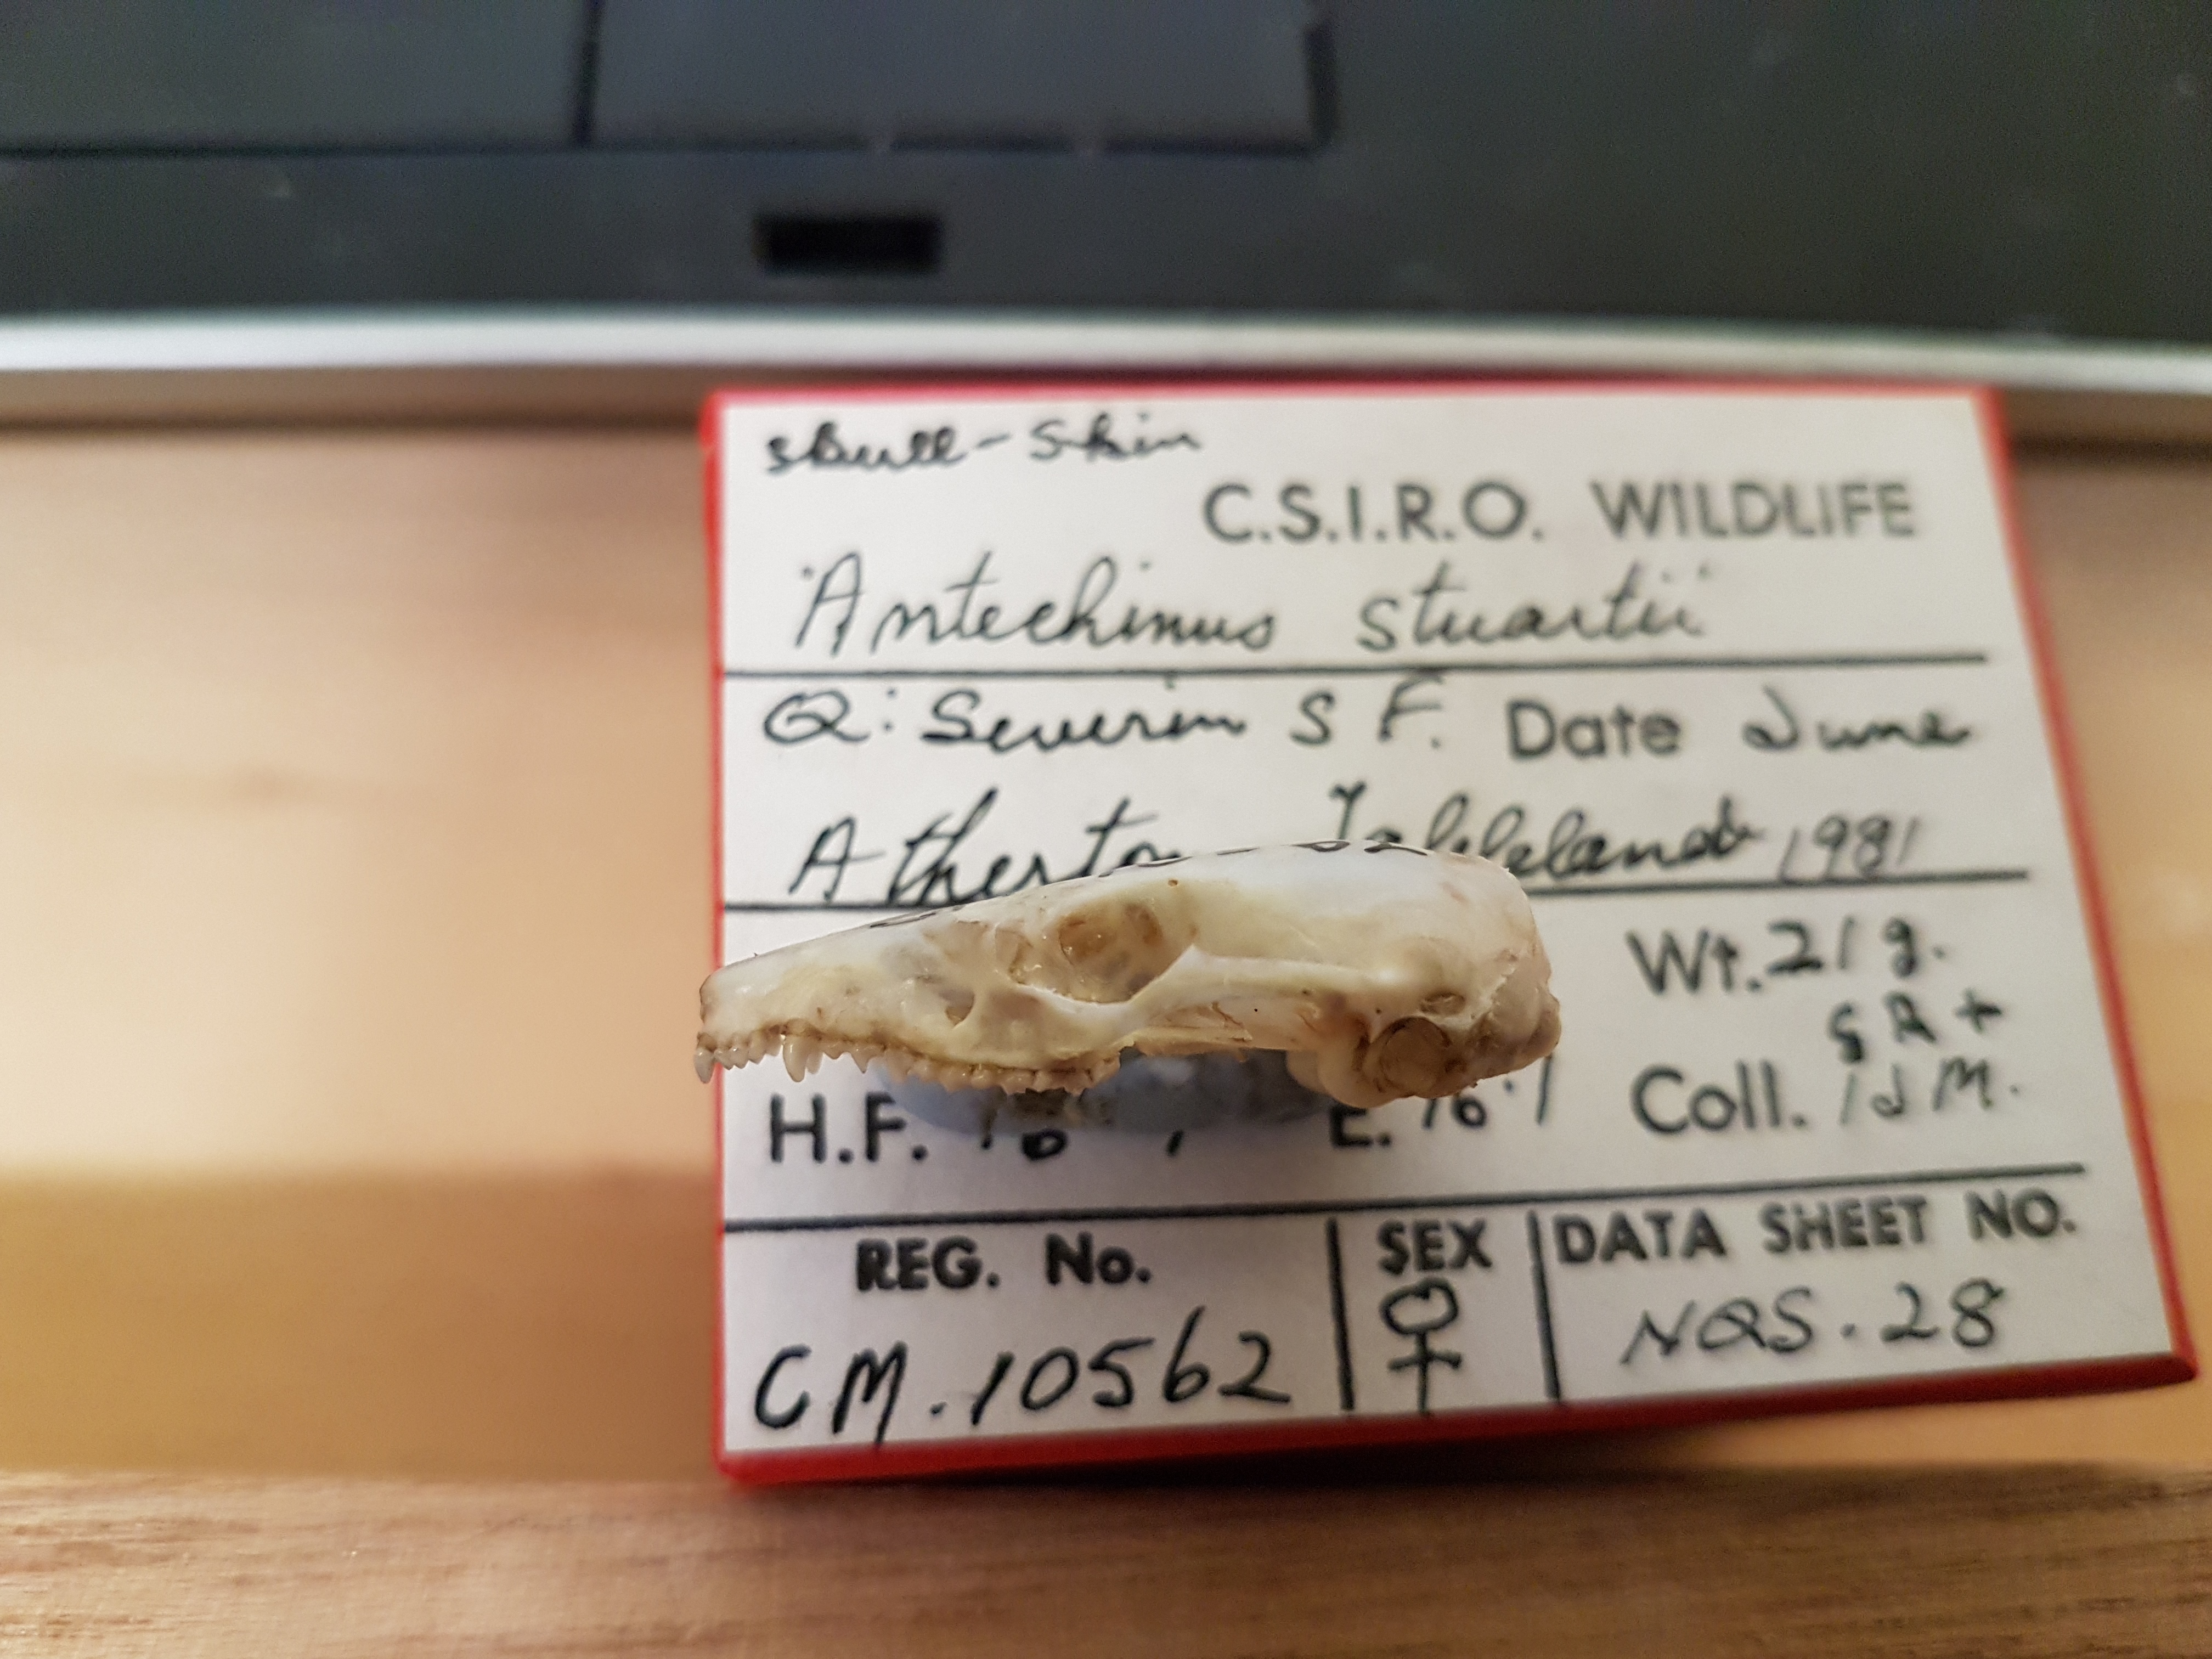 skull - skin
C.S.I.R.O. WILDLIFE
'Antechinus stuartii'
Q: Severin S F. Date June
Atherton Tableland 1981
Wt. 21g.
SR +
H.F. E. 16.1 Coll. IJM.
REG. No. SEX DATA SHEET NO.
CM.10562 ♀ NQS.28